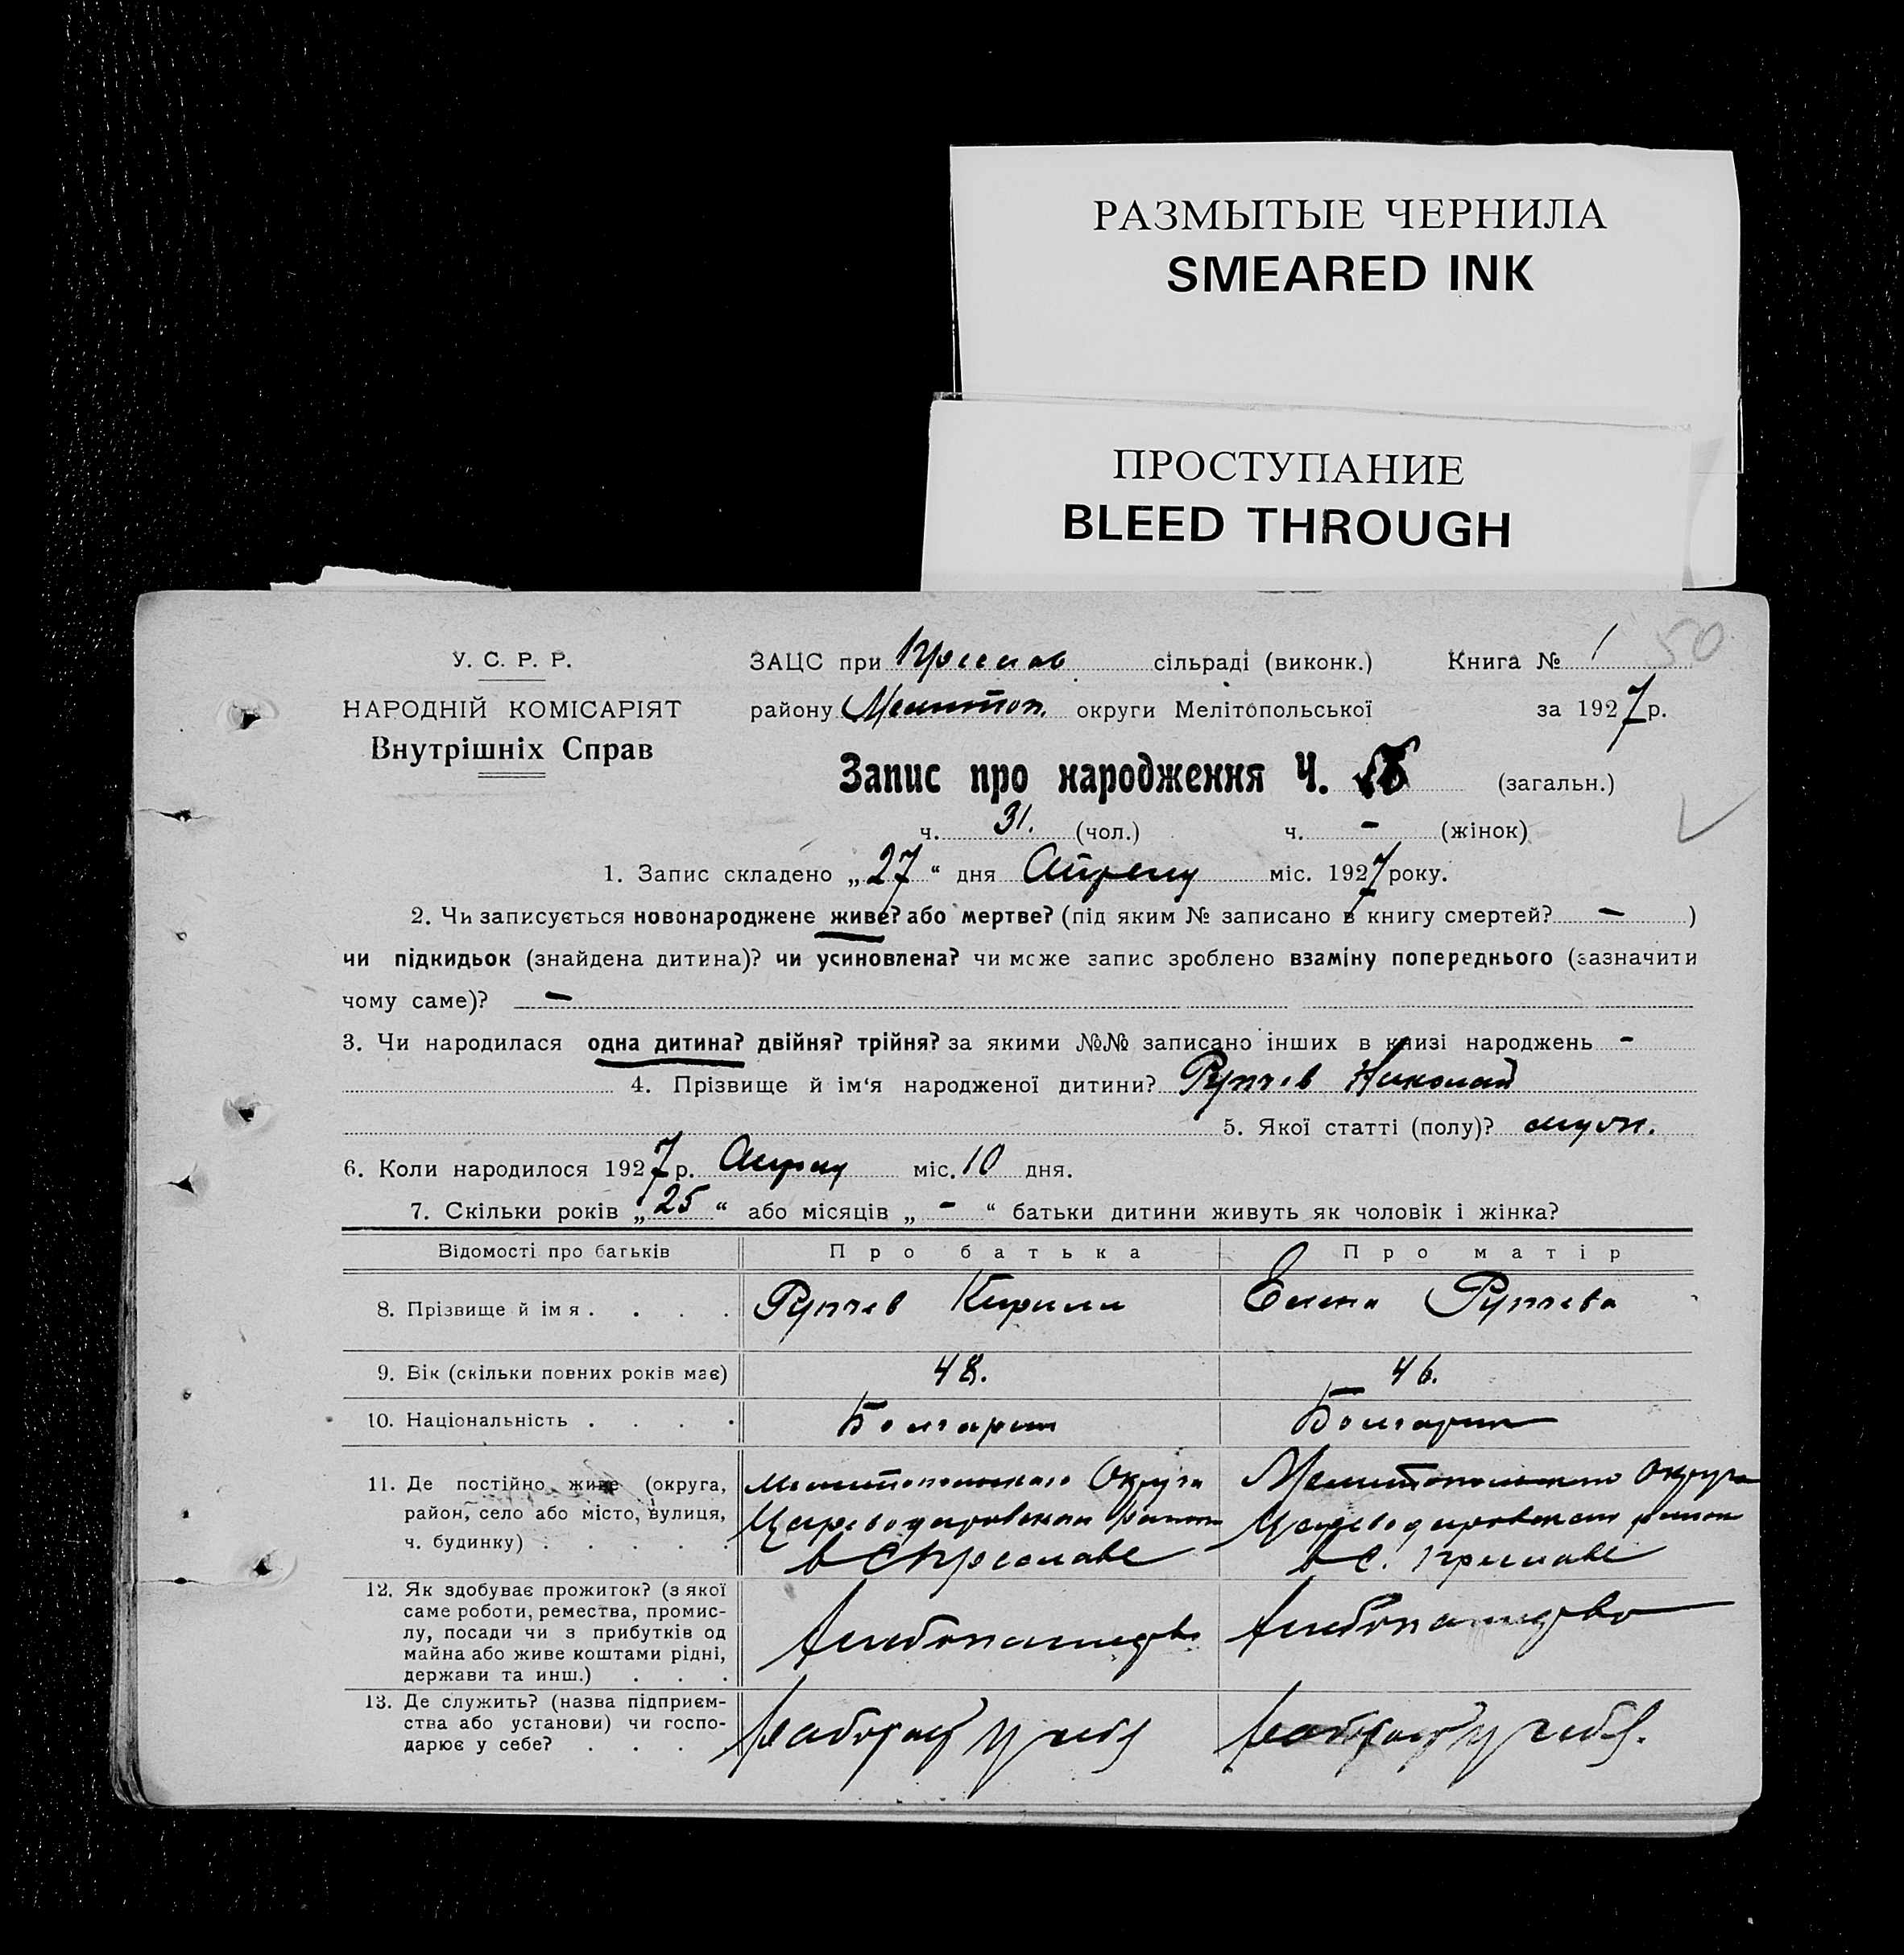 РАЗМЫТЫЕ ЧЕРНИЛА
SMEARED INK
ПРОСТУПАНИЕ
BLEED THROUGH
50
У. С. Р. Р.
НАРОДНІЙ КОМІСАРІЯТ
Внутрішніх Справ
ЗАЦС при сільраді (виконк.) Книга № 1
району Мелитоп. округи Мелітопольської за 1927 р.
Запис про народження Ч. (загальн.)
ч. 31. (чол.) ч. - (жінок)
1. Запис складено „27“ дня міс. 1927 року.
2. Чи записується новонароджене живе? або мертве? (під яким № записано в книгу смертей? - )
чи підкидьок (знайдена дитина)? чи усиновлена? чи може запис зроблено взаміну попереднього (зазначити
чому саме)? -
3. Чи народилася одна дитина? двійня? трійня? за якими №№ записано інших в книзі народжень -
4. Прізвище й ім'я народженої дитини? Рупчев Николай
5. Якої статті (полу)? муж.
6. Коли народилося 1927 р. міс. 10 дня.
7. Скільки років „25“ або місяців „-“ батьки дитини живуть як чоловік і жінка?
Відомості про батьків Про батька Про матір
8. Прізвище й імя . . . . Рупчев Кирилл Елена Рупчева
9. Вік (скільки повних років має) 48. 46.
10. Національність . . . . Болгарин Болгарин
11. Де постійно живе (округа, район, село або місто, вулиця, ч. будинку) . . . . .
Округа
в с. Преславе
Округа
в с. Преславе
12. Як здобуває прожиток? (з якої саме роботи, ремества, промислу, посади чи з прибутків од майна або живе коштами рідні, держави та инш.) . . .
Хлебопашество
13. Де служить? (назва підприємства або установи) чи господарює у себе? . . . .
работает у себя
работает у себя.